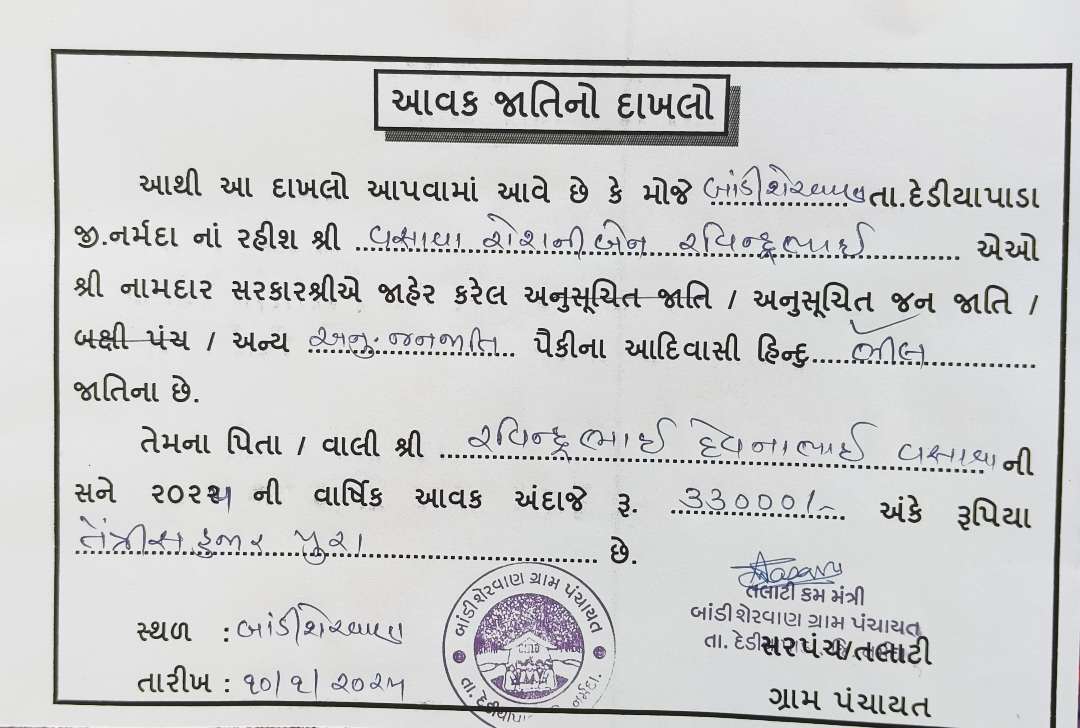 આવક જાતિનો દાખલો
આથી આ દાખલો આપવામાં આવે છે કે મોજે બાંડીશેરવાણ તા.દેડીયાપાડા
જી.નર્મદા નાં રહીશ શ્રી વસાવા રોશનીબેન રવિન્દ્રભાઈ એઓ
શ્રી નામદાર સરકારશ્રીએ જાહેર કરેલ અનુસૂચિત જાતિ / અનુસૂચિત જન જાતિ /
બક્ષી પંચ / અન્ય અનુ.જનજાતિ પૈકીના આદિવાસી હિન્દુ ભીલ
જાતિના છે.
તેમના પિતા / વાલી શ્રી રવિન્દ્રભાઈ દેવનાભાઈ વસાવા ની
સને ૨૦૨૪ ની વાર્ષિક આવક અંદાજે રૂ. 33000/- અંકે રૂપિયા
તેત્રીસ હજાર પુરા છે.
તલાટી કમ મંત્રી
બાંડીશેરવાણ ગ્રામ પંચાયત
સ્થળ : બાંડીશેરવાણ
તા. દેડી સરપંચ/તલાટી
તારીખ : ૧૦/૧/૨૦૨૫
ગ્રામ પંચાયત
બાંડીશેરવાણ ગ્રામ પંચાયત
તા. દેડીયાપા નર્મદા.